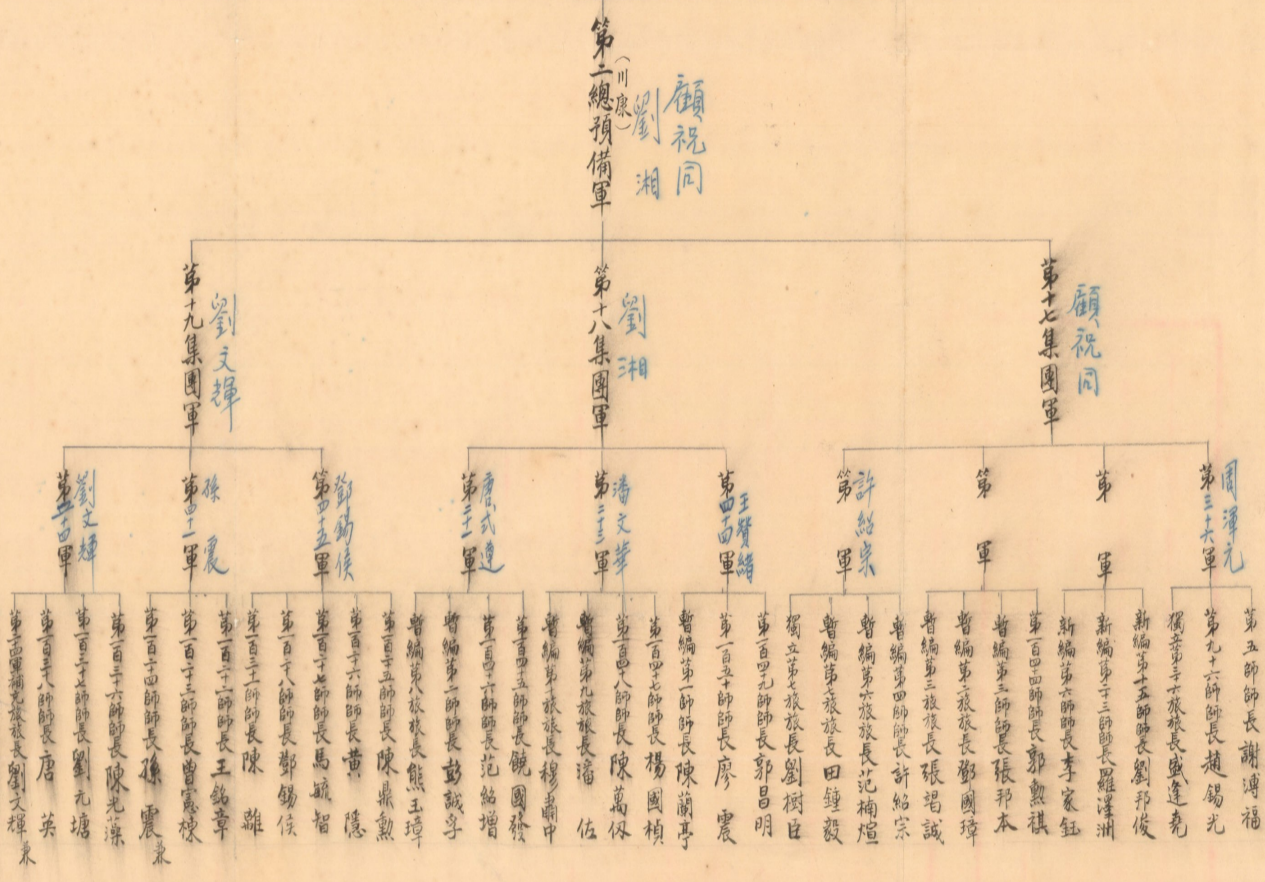 第二總預備軍
（川康）
顧祝同
劉湘
第十七集團軍
顧祝同
第十八集團軍
劉湘
第十九集團軍
劉文輝
第三十六軍
周渾元
第軍
第軍
第軍
許紹宗
第四十四軍
王贊緒
第二十三軍
潘文華
第二十一軍
唐式遵
第四十五軍
鄧錫侯
第四十一軍
孫震
第二十四軍
劉文輝
第五師師長謝溥福
第九十六師師長趙錫光
獨立第三十六旅旅長盛逢堯
新編第十五師師長劉邦俊
新編第二十三師師長羅澤洲
新編第六師師長李家鈺
第一百四十四師師長郭勲祺
暫編第三師師長張邦本
暫編第二旅旅長鄧國璋
暫編第三旅旅長張竭誠
暫編第四師師長許紹宗
暫編第六旅旅長范楠煊
暫編第七旅旅長田鍾毅
獨立第七旅旅長劉樹臣
第一百四十九師師長郭昌明
第一百五十師師長廖震
暫編第一師師長陳蘭亭
第一百四十七師師長楊國楨
第一百四十八師師長陳萬仞
暫編第九旅旅長潘佐
暫編第十旅旅長穆肅中
第一百四十五師師長饒國發
第一百四十六師師長范紹增
暫編第二師師長彭誠孚
暫編第八旅旅長熊玉璋
第一百二十五師師長陳鼎勲
第一百二十六師師長黄隱
第一百二十七師師長馬毓智
第一百二十八師師長鄧錫侯
第一百三十一師師長陳離
第一百二十二師師長王銘章
第一百二十三師師長曾憲棟
第一百二十四師師長孫震兼
第一百三十六師師長陳光藻
第一百三十七師師長劉元塘
第一百三十八師師長唐英
第二十四軍補充旅旅長劉文輝兼